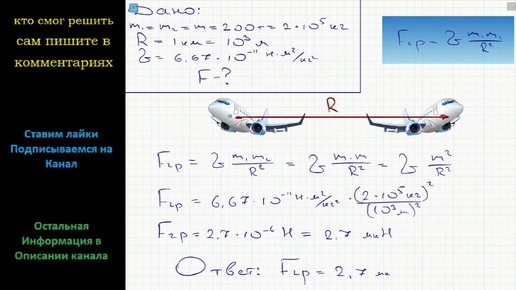 кто смог решить
сам пишите в
комментариях
Ставим лайки
Подписываемся на
Канал
Остальная
Информация в
Описании канала
Дано:
m₁ = m₂ = m = 200 т = 2·10⁵ кг
R = 1 км = 10³ м
G = 6,67·10⁻¹¹ Н·м²/кг²
F - ?
Fгр = G m₁m₂/R²
R
Fгр = G m₁m₂/R² = G m·m/R² = G m²/R²
Fгр = 6,67·10⁻¹¹ Н·м²/кг² · (2·10⁵кг)²/(10³м)²
Fгр = 2,7·10⁻⁶ Н = 2,7 мкН
Ответ: Fгр = 2,7 мк